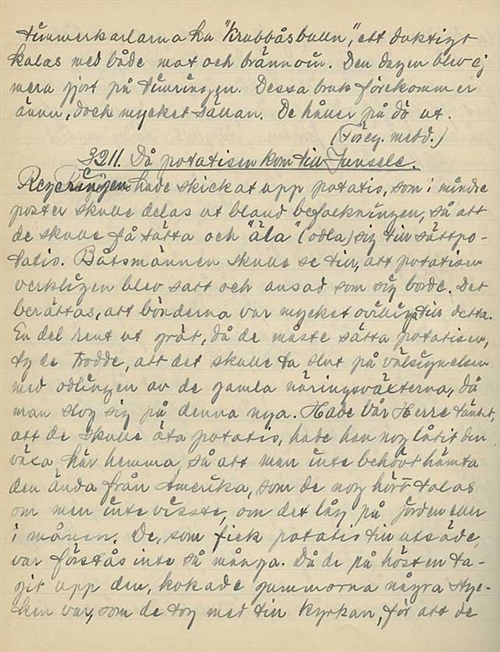 timmerkarlarna ha "krubbåsbulln", ett duktigt
kalas med både mat och brännvin. Den dagen blev ej
mera gjort på timringen. Dessa bruk förekommer
ännu, dock mycket sällan. De håller på dö ut.
(Föreg. medd.)
3211. Då potatisen kom till Junsele.
Regeringen hade skickat upp potatis, som i mindre
poster skulle delas ut bland befolkningen, så att
de skulle få sätta och "äla" (odla) sig till sättpo-
tatis. Båtsmännen skulle se till, att potatisen
verkligen blev satt och ansad som sig borde. Det
berättas, att bönderna var mycket ovilliga till detta.
En del rent ut grät, då de måste sätta potatisen,
ty de trodde, att det skulle ta slut på välsignelsen
med odlingen av de gamla näringsväxterna, då
man slog sig på denna nya. Hade Vår Herre tänkt,
att de skulle äta potatis, hade han nog låtit den
växa här hemma, så att man inte behövt hämta
den ända från Amerika, som de nog hört talas
om men inte visste, om det låg på jorden eller
i månen. De, som fick potatis till utsäde,
var förstås inte så många. Då de på hösten ta-
git upp den, kokade gummorna några styc-
ken var, som de tog med till kyrkan, för att de